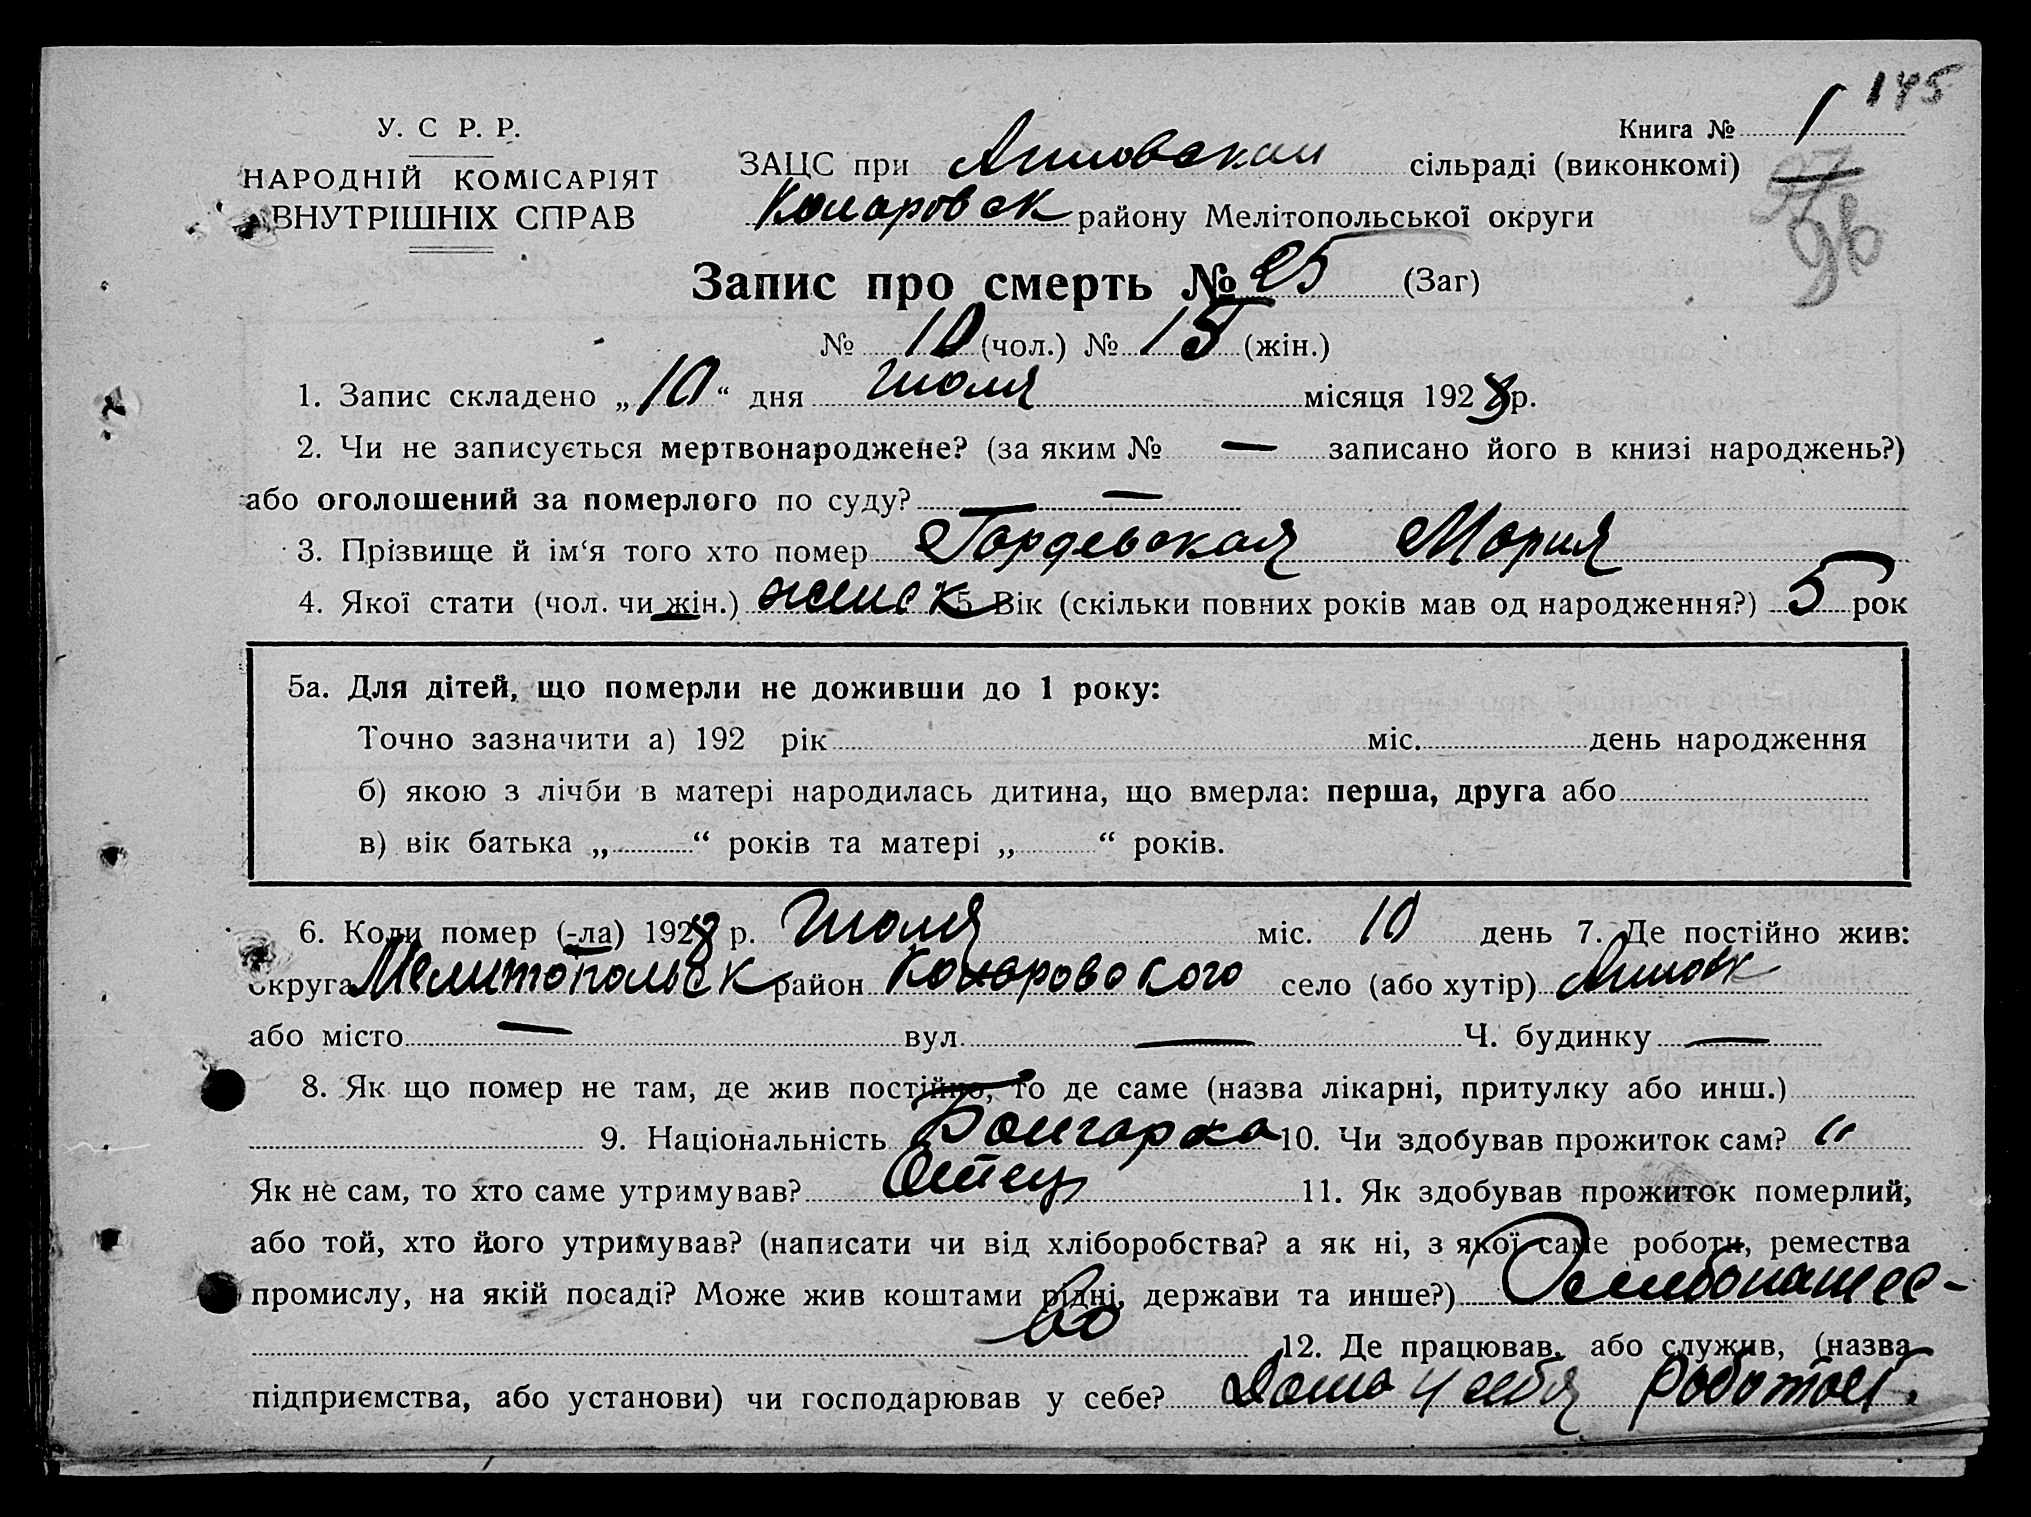 145
У. С Р. Р.
Книга № 1
НАРОДНІЙ КОМІСАРІЯТ
ВНУТРІШНІХ СПРАВ
ЗАЦС при сільраді (виконкомі)
Коларовск району Мелітопольської округи
96
Запис про смерть № 25 (Заг)
№ 10 (чол.) № 15 (жін.)
1. Запис складено „10“ дня июля місяця 1928 р.
2. Чи не записується мертвонароджене? (за яким № — записано його в книзі народжень?)
або оголошений за померлого по суду? —
3. Прізвище й ім‘я того хто помер Мария
4. Якої стати (чол. чи жін.) женск 5 Вік (скільки повних років мав од народження?) 5 рок
5а. Для дітей, що померли не доживши до 1 року:
Точно зазначити а) 192 рік міс. день народження
б) якою з лічби в матері народилась дитина, що вмерла: перша, друга або
в) вік батька „ “ років та матері „ “ років.
6. Коли помер (-ла) 1928 р. июля міс. 10 день 7. Де постійно жив:
округа Мелитопольск район Коларовского село (або хутір)
або місто — вул. — Ч. будинку —
8. Як що помер не там, де жив постійно, то де саме (назва лікарні, притулку або инш.)
9. Національність Болгарка 10. Чи здобував прожиток сам? "
Як не сам, то хто саме утримував? Отец 11. Як здобував прожиток померлий,
або той, хто його утримував? (написати чи від хліборобства? а як ні, з якої саме роботи, ремества
промислу, на якій посаді? Може жив коштами рідні, держави та инше?) Хлебопашес-
во 12. Де працював, або служив, (назва
підприємства, або установи) чи господарював у себе? Дома у себя работает.